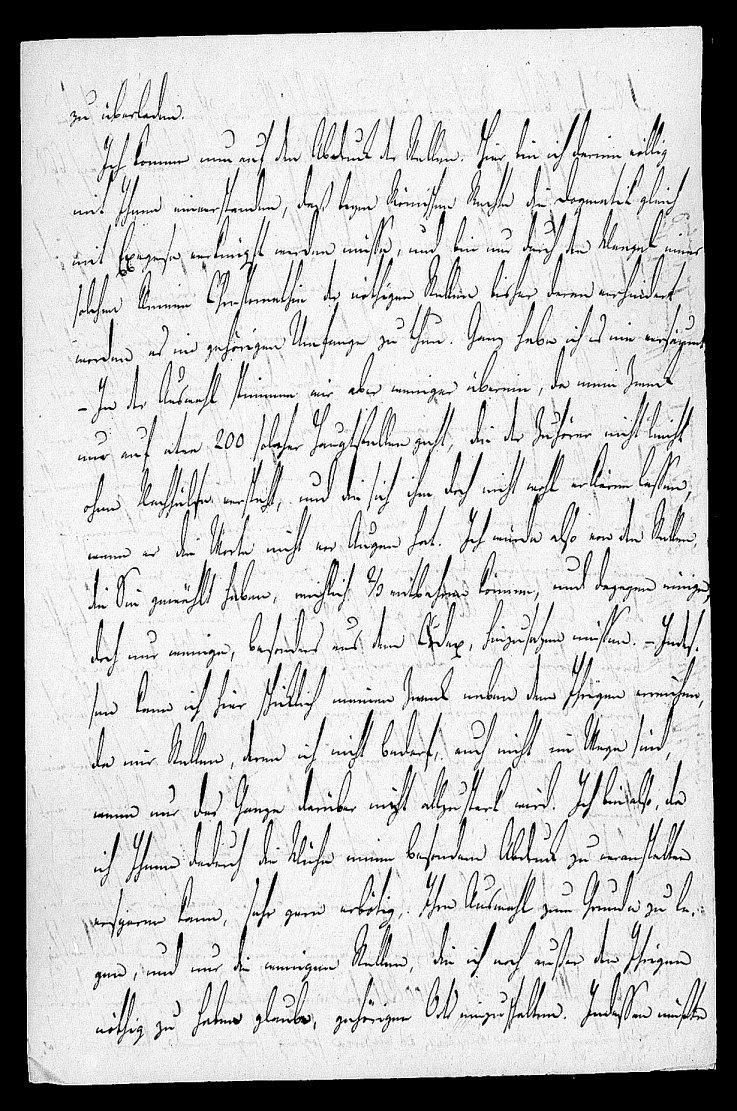 zu überladen.
Ich komme nun auf den Abdruck der Stellen. Hier bin ich darin völlig
mit Ihnen einverstanden, daß beym Römischen Rechte die Dogmatik gleich
mit Exegese verknüpft werden müsse, und bin nur durch den Mangel einer
solchen kleinen Chrestomathie der nöthigen Stellen bisher daran verhindert
worden es im gehörigen Umfange zu thun. Ganz habe ich es nie versäumt.
– In der Auswahl stimmen wir aber weniger überein, da mein Zweck
nur auf etwa 200 solcher Hauptstellen geht, die der Zuhörer nicht leicht
ohne Nachhülfe versteht, und die sich ihm doch nicht wohl erklären lassen,
wenn er die Worte nicht vor Augen hat. Ich würde also von den Stellen,
die Sie gewählt haben, reichlich 2/3 entbehren können, und dagegen einige,
doch nur wenige, besonders aus dem Codex, hinzusetzen müssen. – Indes-
sen kann ich hier schicklich meinen Zweck neben dem Ihrigen erreichen,
da mir Stellen, deren ich nicht bedarf, auch nicht im Wege sind,
wenn nur das Ganze darüber nicht allzustark wird. Ich bin also, da
ich Ihnen dadurch die Mühe einen besondern Abdruck zu veranstalten
ersparen kann, sehr gern erbötig, Ihre Auswahl zum Grunde zu le-
gen, und nur die wenigen Stellen, die ich noch außer den Ihrigen
nöthig zu haben glaube, gehörigen Orts einzuschalten. Indessen müßte